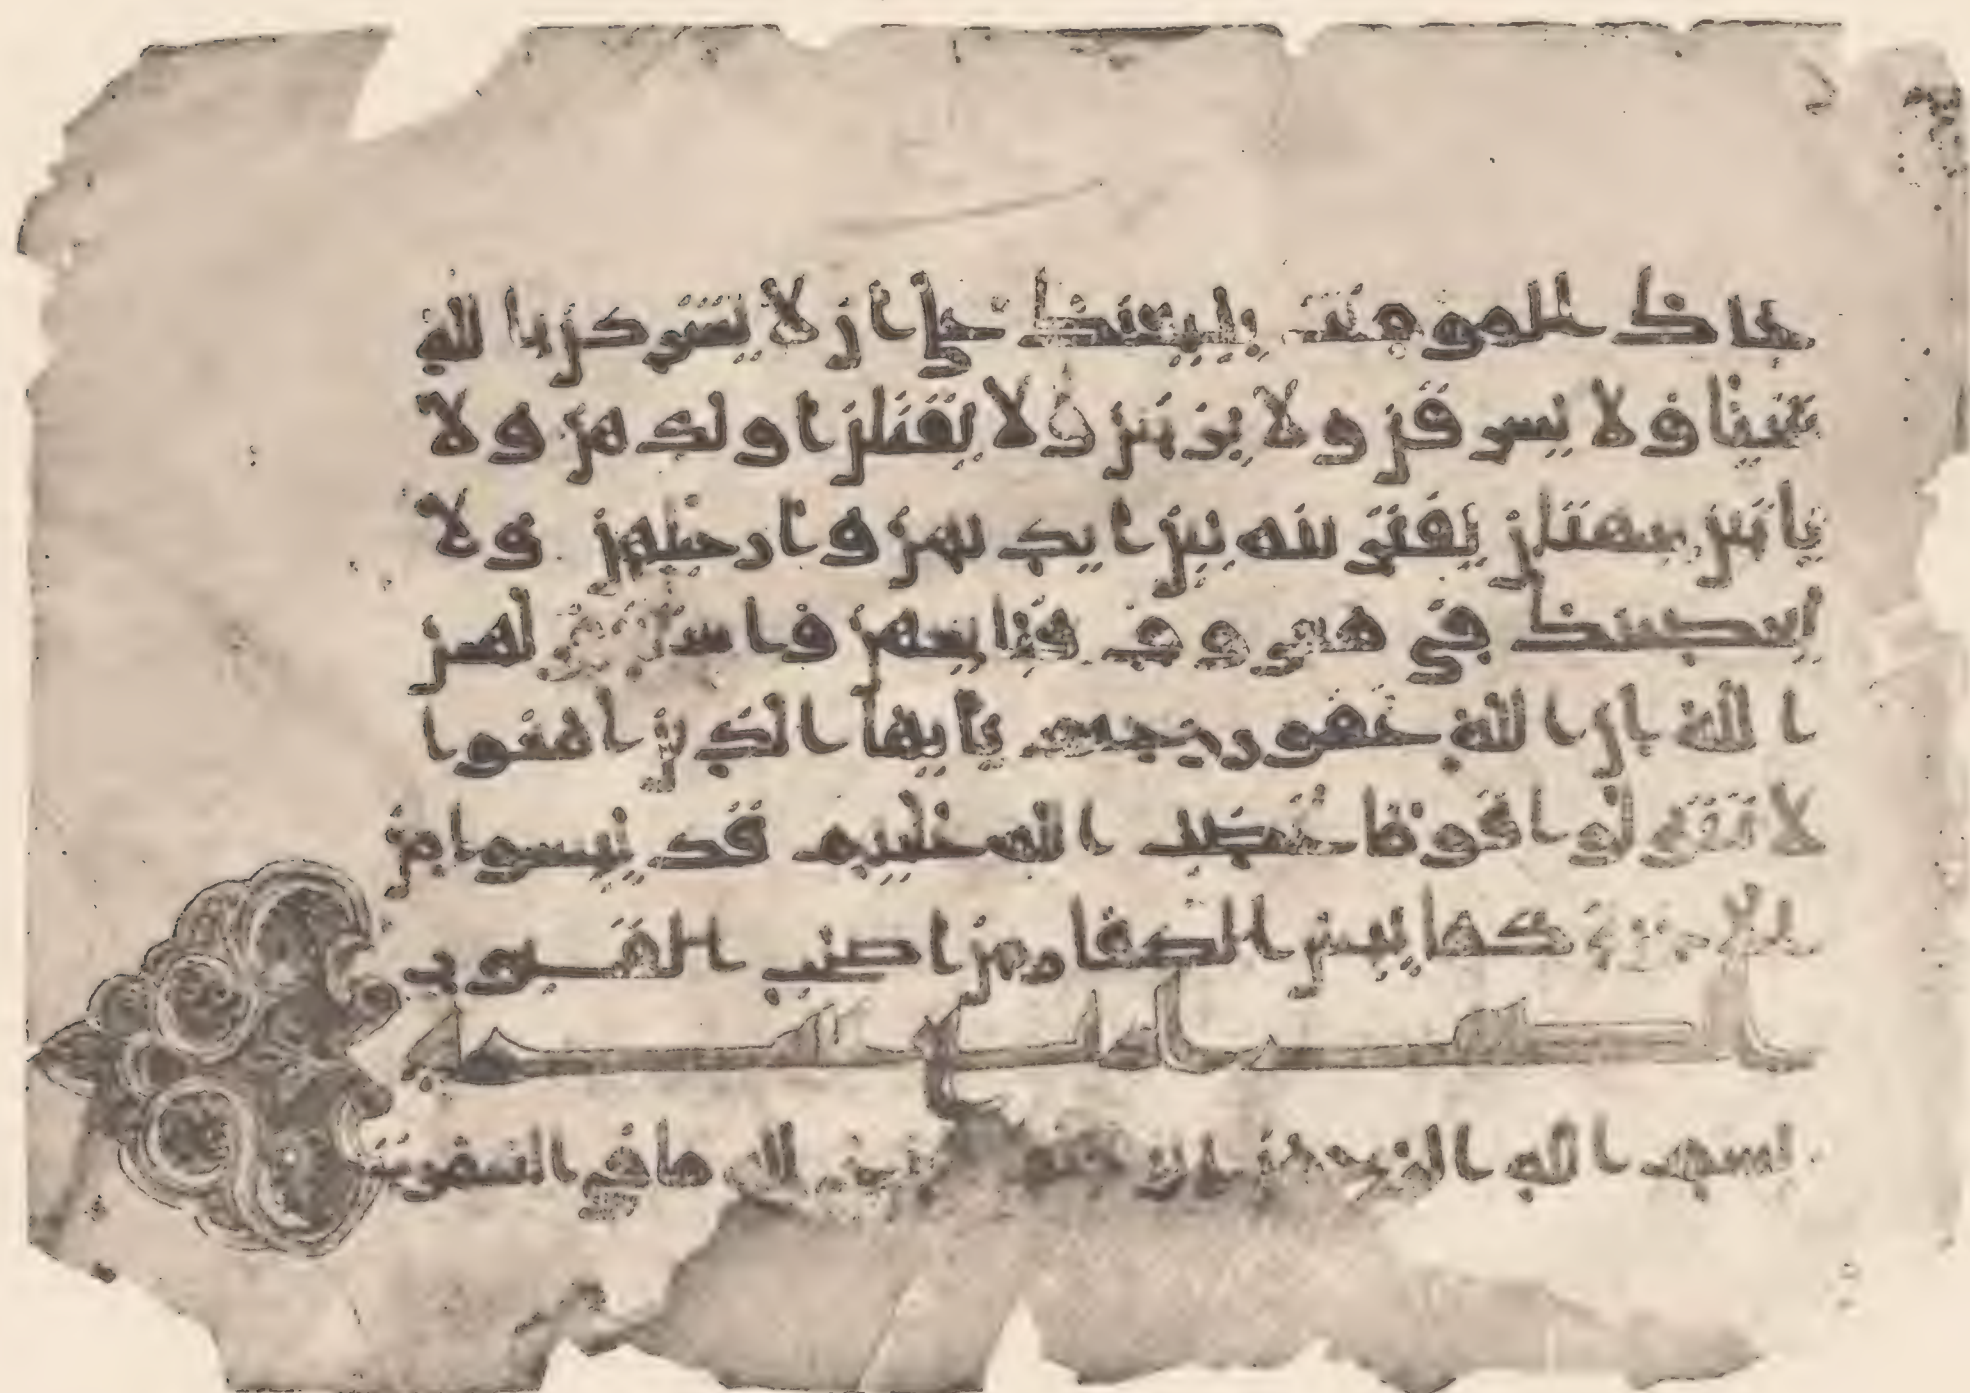 جاك المومنت يبيعنك على ان لا يشركن بالله
شيئا ولا يسرقن ولا يزنين ولا يقتلن اولدهن ولا
ياتين ببهتان يفترينه بين ايديهن وارجلهن ولا
يعصينك في معروف فبايعهن واستغفر لهن
الله ان الله غفور رحيم يايها الذين امنوا
لا تتولوا قوما غضب الله عليهم قد يئسوا من
الاخرة كما يئس الكفار من اصحب القبور
بسم الله الرحمن الرحيم سبح لله ما في السموت